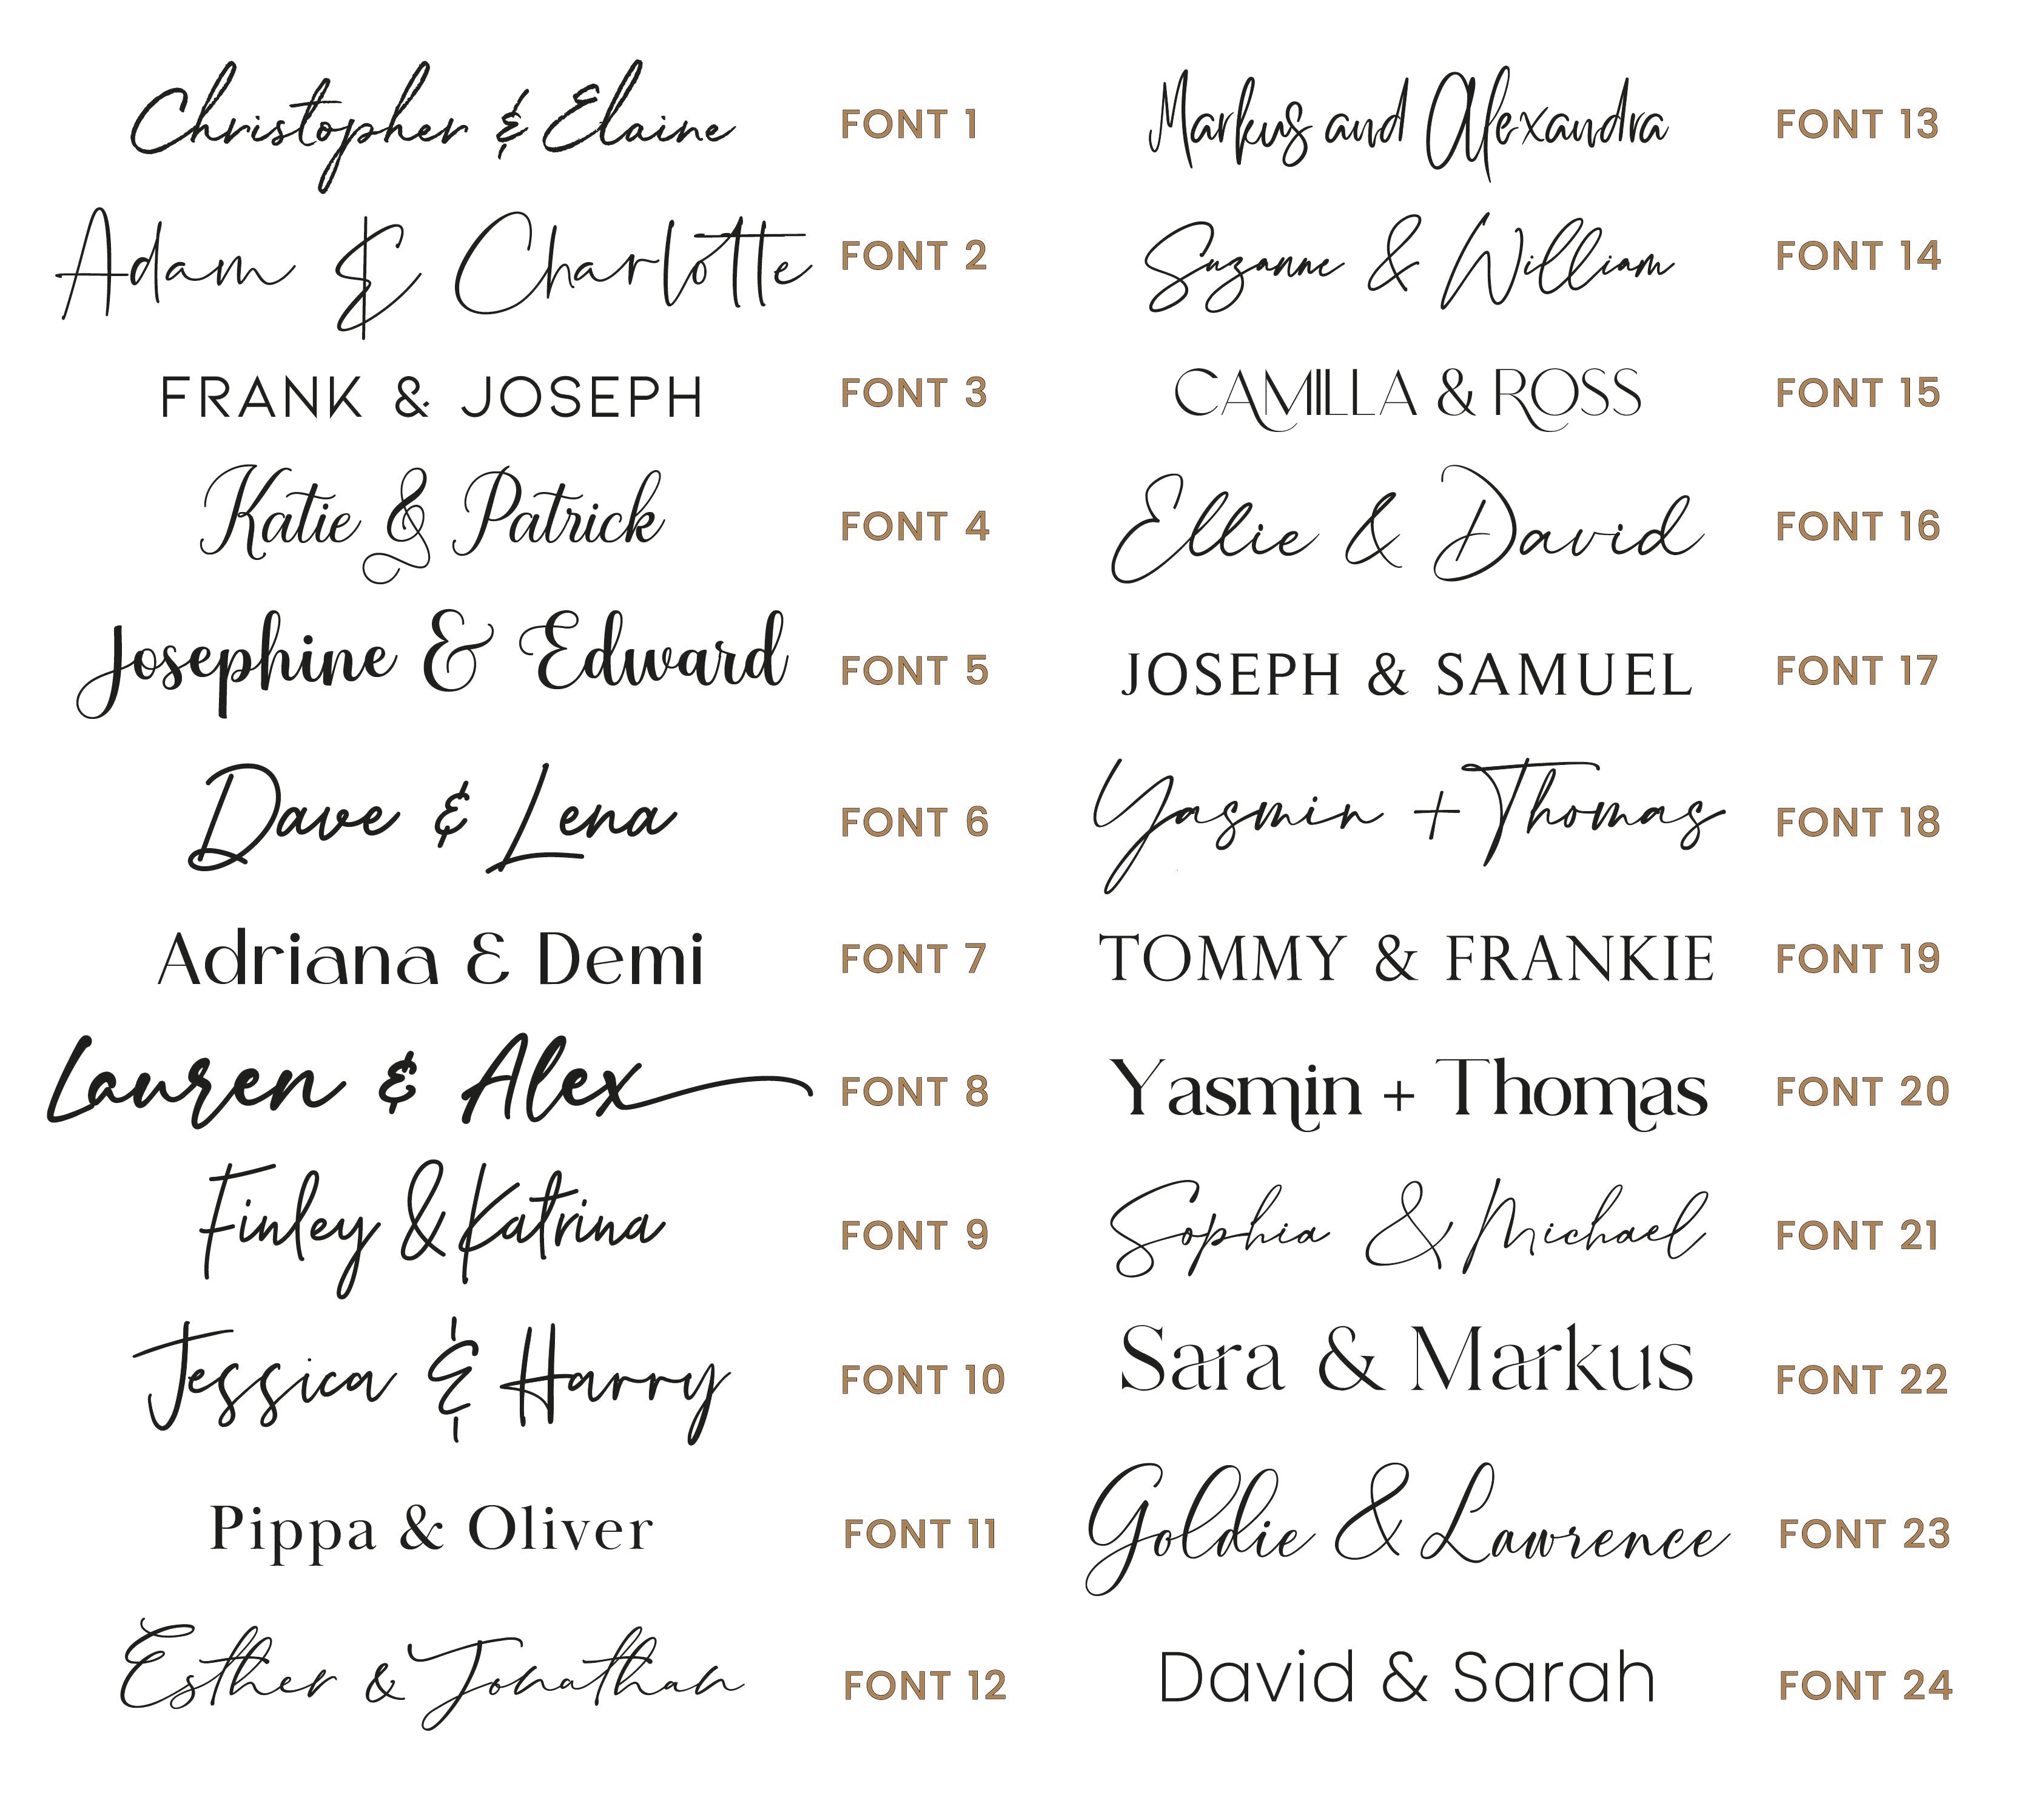 Christopher & Elaine FONT 1
Adam & Charlotte FONT 2
FRANK & JOSEPH FONT 3
Katie & Patrick FONT 4
Josephine & Edward FONT 5
Dave & Lena FONT 6
Adriana & Demi FONT 7
Lauren & Alex FONT 8
Finley & Katrina FONT 9
Jessica & Harry FONT 10
Pippa & Oliver FONT 11
Esther & Jonathan FONT 12
Markus and Alexandra FONT 13
Suzanne & William FONT 14
CAMILLA & ROSS FONT 15
Ellie & David FONT 16
JOSEPH & SAMUEL FONT 17
Yasmin + Thomas FONT 18
TOMMY & FRANKIE FONT 19
Yasmin + Thomas FONT 20
Sophia & Michael FONT 21
Sara & Markus FONT 22
Goldie & Lawrence FONT 23
David & Sarah FONT 24